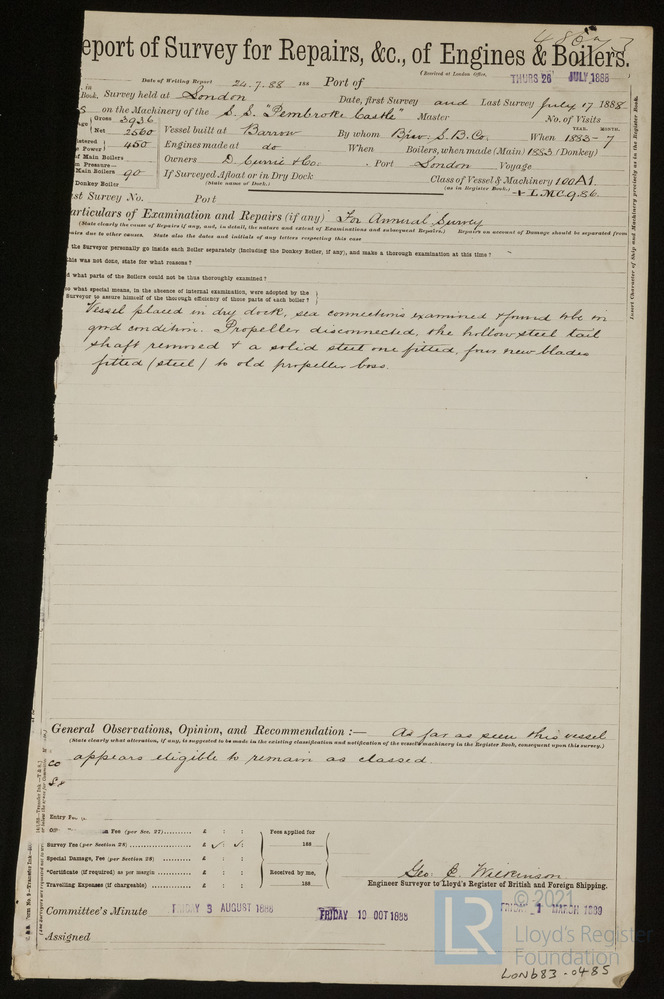 eport of Survey for Repairs, &c., of Engines & Boilers.
Date of Writing Report 24.7.88 188 Port of
(Received at London Office, THURS 26 JULY 1888
in
Book. Survey held at London Date, first Survey and Last Survey July 17 1888
S on the Machinery of the S.S. "Pembroke Castle" Master No. of Visits
Gross 3936
Net 2560 Vessel built at Barrow By whom Barw. S.B.Co. When 1883-7
YEAR. MONTH.
istered
e Power 450 Engines made at do When Boilers, when made (Main) 1883 (Donkey)
f Main Boilers Owners D. Currie & Co. Port London Voyage
m Pressure—
Main Boilers 90 If Surveyed Afloat or in Dry Dock
(State name of Dock.)
Class of Vessel & Machinery 100A1.
(as in Register Book) + L.M.C. 9.86.
Donkey Boiler
st Survey No. Port
articulars of Examination and Repairs (if any) For Annual Survey
(State clearly the cause of Repairs if any, and, in detail, the nature and extent of Examinations and subsequent Repairs.) Repairs on account of Damage should be separated from
pairs due to other causes. State also the dates and initials of any letters respecting this case
the Surveyor personally go inside each Boiler separately (including the Donkey Boiler, if any), and make a thorough examination at this time?
this was not done, state for what reasons?
d what parts of the Boilers could not be thus thoroughly examined?
o what special means, in the absence of internal examination, were adopted by the
Surveyor to assure himself of the thorough efficiency of those parts of each boiler?
Vessel placed in dry dock, sea connections examined & found to be in
good condition. Propeller disconnected, the hollow steel tail
shaft removed & a solid steel one fitted, four new blades
fitted (steel) to old propeller boss.
Insert Character of Ship and Machinery precisely as in the Register Book.
General Observations, Opinion, and Recommendation :— As far as seen this vessel
(State clearly what alteration, if any, is suggested to be made in the existing classification and notification of the vessel's machinery in the Register Book, consequent upon this survey.)
appears eligible to remain as classed.
Entry Fe
n Fee (per Sec. 27) £ : :
Survey Fee (per Section 28) £ : :
Special Damage, Fee (per Section 28) £ : :
*Certificate (if required) as per margin £ : :
Travelling Expenses (if chargeable) £ : :
Fees applied for
188
Received by me,
188
Geo. C. Wilkinson
Engineer Surveyor to Lloyd's Register of British and Foreign Shipping.
Committee's Minute FRIDAY 3 AUGUST 1888 FRIDAY 19 OCT 1888 FRIDAY 1 MARCH 1889
Assigned
© 2021
LR Lloyd's Register
Foundation
LON683-0485